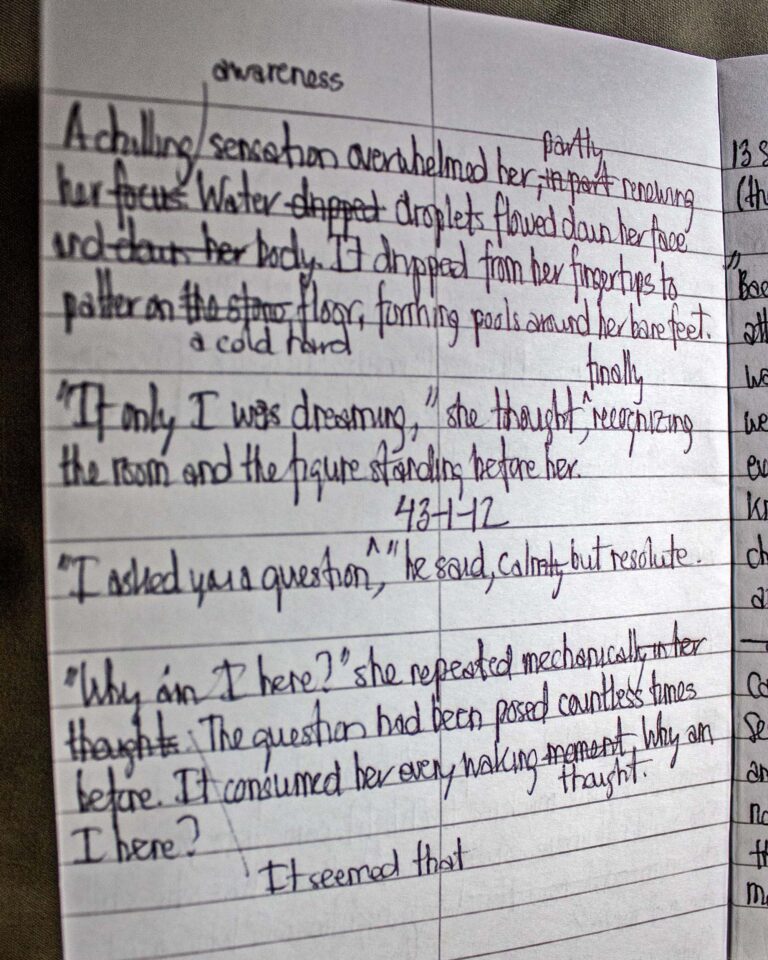 awareness
A chilling sensation overwhelmed her, in part renewing
partly
her focus Water dripped droplets flowed down her face
and down her body. It dripped from her fingertips to
patter on the stone, floor, forming pools around her bare feet.
a cold hard
finally
"If only I was dreaming," she thought, recognizing
the room and the figure standing before her.
43-1-12
"I asked you a question," he said, calmly but resolute.
"Why am I here?" she repeated mechanically in her
thoughts. The question had been posed countless times
before. It consumed her every waking moment. Why am
thought.
I here?
It seemed that
13 S
(th
"Bac
att
wa
we
ev
Kn
ch
a
Co
Se
an
no
th
m